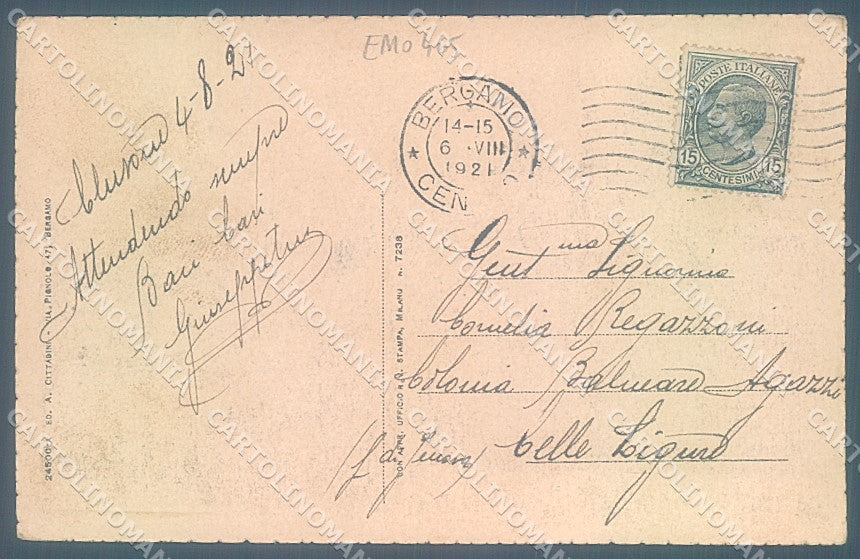 EMO 465
Clusone 4-8-21
Attendendo sempre
Baci Cari
Giuseppina
BERGAMO
14-15
6 · VIII
1921
CEN
POSTE ITALIANE
15 15
CENTESIMI
Gent.ma Signorina
Cornelia Regazzoni
Colonia Balneare Agazzi
Celle Ligure
24500LX ED. A. CITTADINI - VIA PIGNOLO 47, BERGAMO
UFFICIO REV. STAMPA, MILANO N. 7238
CARTOLINOMANIA